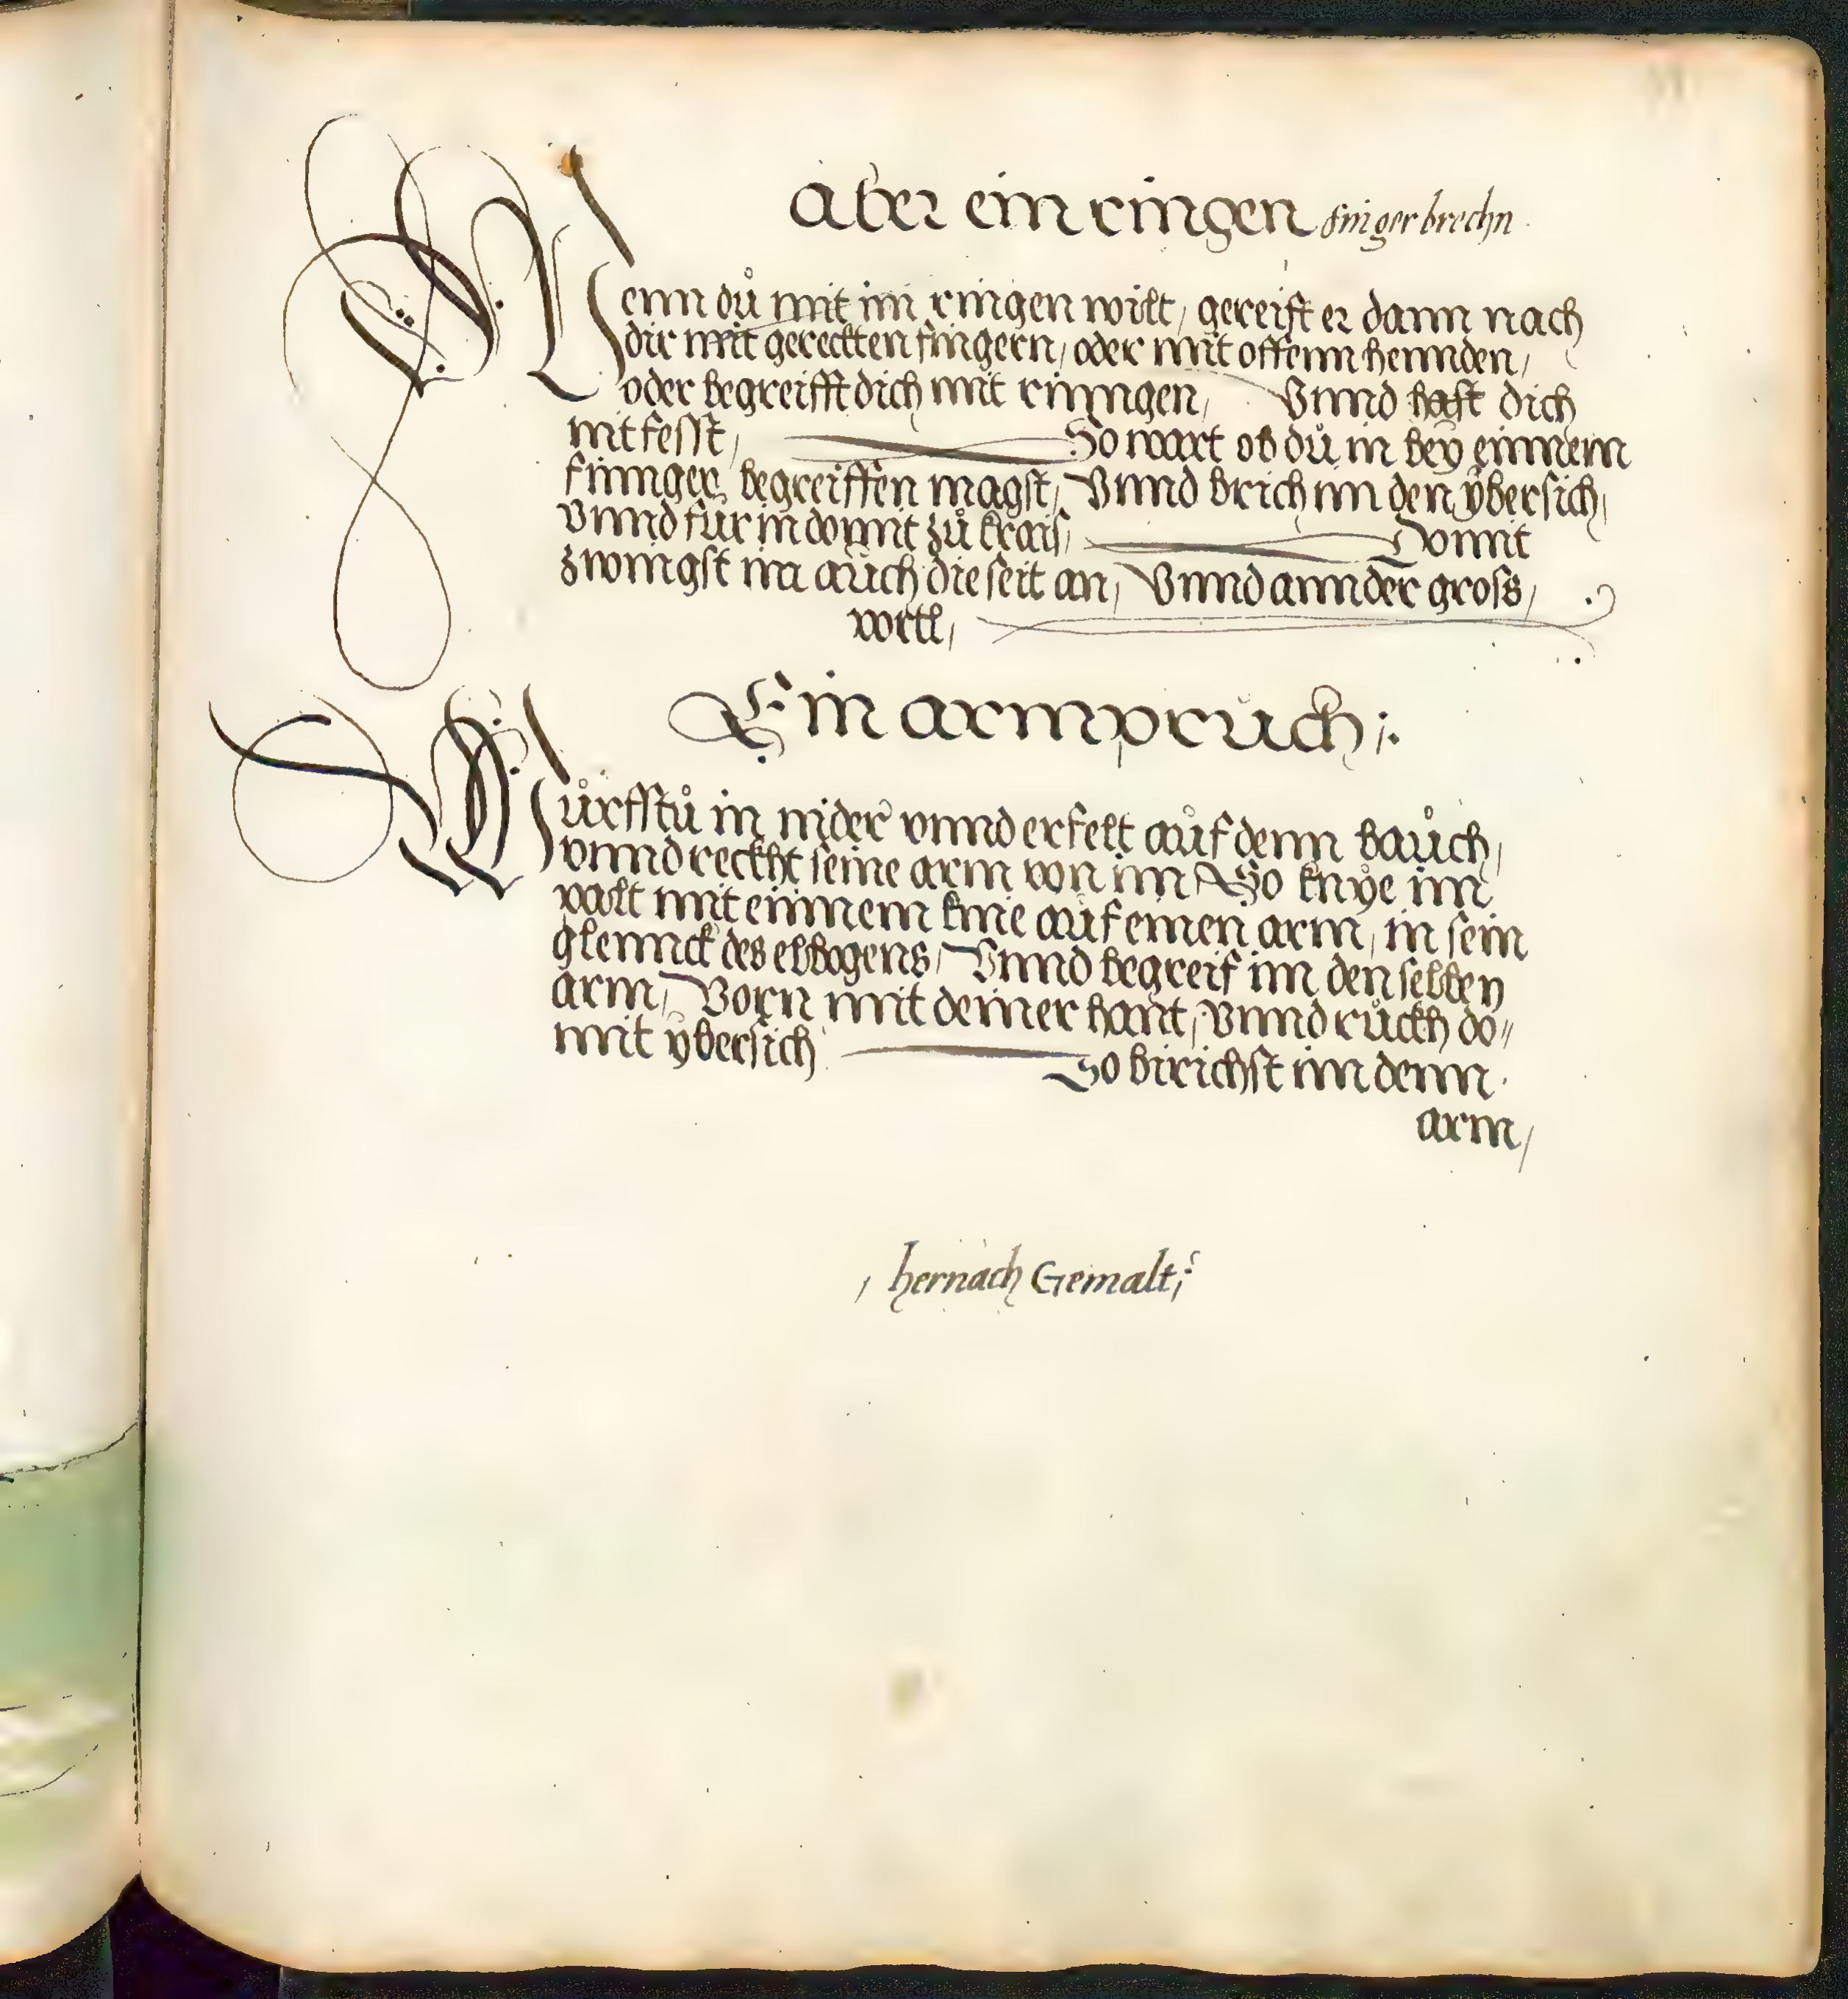 Aber ein ringen finger brechn
Wenn dů mit im ringen wilt, gereift er dann nach
dir mit gereckten fingern, oder mit offenn hennden,
oder begreifft dich mit rinngen, Vnnd hast dich
nit fesst, So wart ob dů in beÿ einnem
finnger begreiffen magst, Vnnd brich im den ÿbersich,
vnnd für in domit zů krais, Domit
zwingst im aůch die seit an, Vnnd annder gross,
vortl,
Ein armpruch
Wůrfstů in nider vnnd er felt aůf denn baůch,
vnnd reckht seine arm von im So knÿe im
palt mit einnem knie aůf einen arm, in sein
glennck des elbogens, Vnnd begreif im den selben
arm, Vorn mit deiner hant, Vnnd růckh do„
mit ÿbersich So birichst im denn
arm,
hernach Gemalt